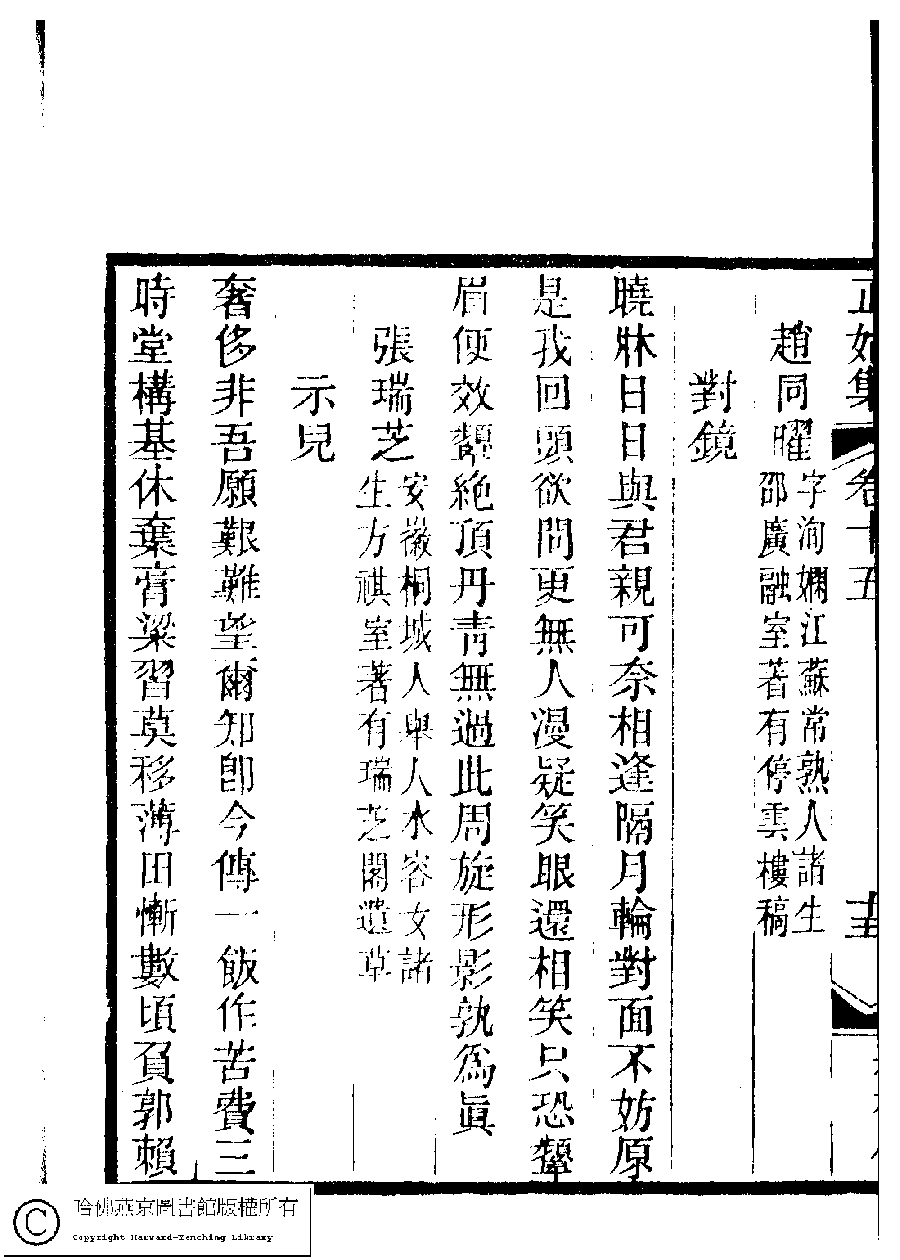 正始集 卷十五
趙同曜
字洵嫻江蘇常熟人諸生
邵廣融室著有停雲樓稿
對鏡
曉牀日日與君親可奈相逢隔月輪對面不妨原
是我回頭欲問更無人漫疑笑眼還相笑只恐顰
眉便效顰絶頂丹靑無過此周旋形影孰爲眞
張瑞芝
安徽桐城人舉人水容女諸
生方祺室著有瑞芝閣遺草
示兒
奢侈非吾願艱難望爾知卽今傳一飯作苦費三
時堂構基休棄膏粱習莫移薄田慚數頃負郭賴
哈佛燕京圖書館版權所有
Copyright Harvard-Yenching Library